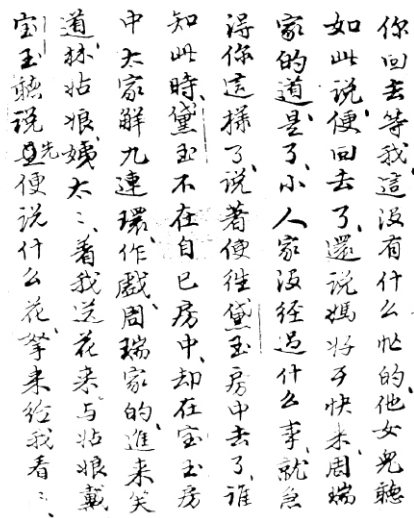 你回去等我、這沒有什么忙的、他女兒聽
如此說、便回去了、還說媽好歹快来、周瑞
家的道、是了、小人家沒經過什么事、就急
得你這樣了、說著便往黛玉房中去了、誰
知此時、黛玉不在自己房中、却在宝玉房
中太家解九連環、作戲、周瑞家的、進来笑
道、林姑娘、姨太〻、着我送花来、与姑娘戴
宝玉聽說先便說什么花、拏来給我看〻、